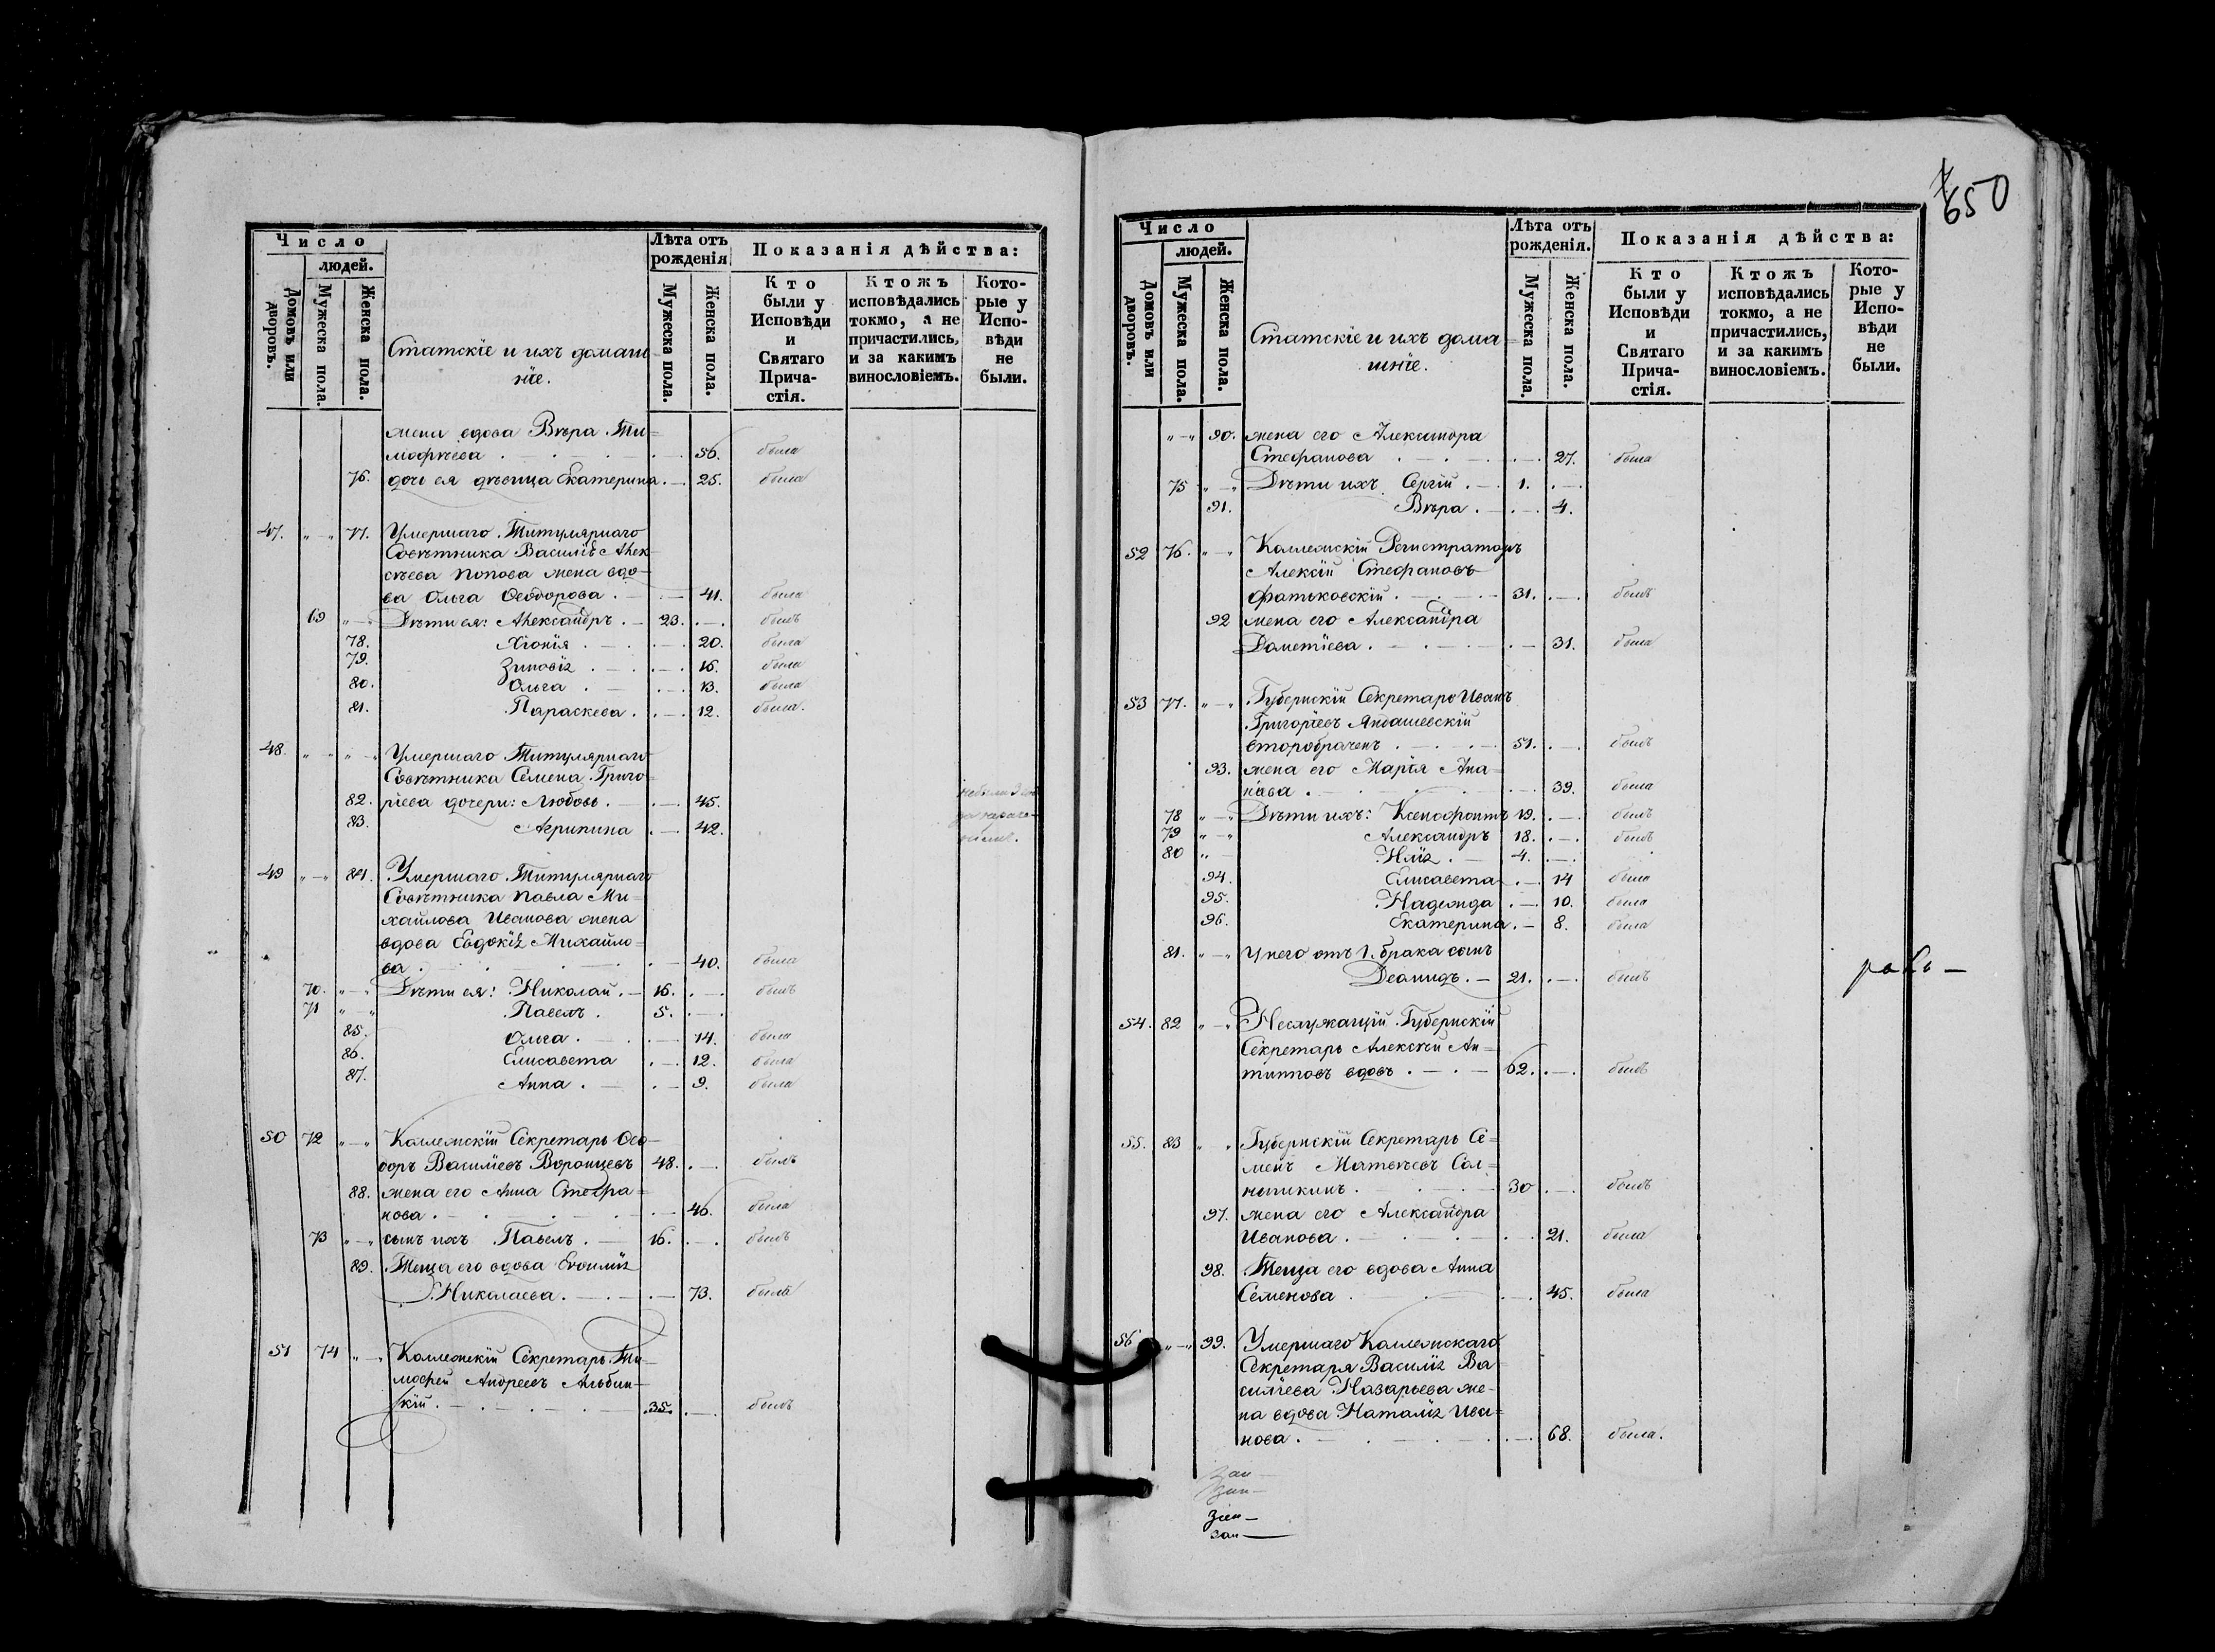 Число
людей.
Домовъ или дворовъ.
Мужеска пола.
Женска пола.
Статскіе и ихъ домаш=
ніе.
Лѣта отъ рожденія
Мужеска пола.
Женска пола.
Показанія дѣйства:
Кто были у Исповѣди и Святаго Прича-стія.
Ктожъ исповѣдались токмо, а не причастились, и за какимъ винословіемъ.
Кото-рые у Испо-вѣди не были.
жена вдова Вѣра Ти=
мофѣева . — . — 56. была
76. дочь ея дѣвица Екатерина . — 25. была
47. „—„ 77. Умершаго Титулярнаго
Совѣтника Василія Алек=
сѣева Попова жена вдо=
ва Ольга Ѳеодорова . — 41. была
69 „—„ Дѣти ея: Александръ . — 23. . — . былъ
78. Хіонія . — . — 20. была
79. Зиновія . — . — 16. была
80. Ольга . — . — 13. была
81. Параскева . . — 12. была.
48. „ — „ — „ Умершаго Титулярнаго
Совѣтника Семена Григо=
82. рьева дочери: Любовь . — . — 45.
83. Агрипина . — 42.
49 „—„ 84. Умершаго Титулярнаго
Совѣтника Павла Ми=
хайлова Иванова жена
вдова Евдокія Михайло=
ва . — . — 40. была
70. „—„ Дѣти ея: Николай . — 16. . — . былъ
71 „—„ Павелъ . 5. . — .
85. Ольга . — . — 14. была
86. Елисавета . — 12. была
87. Анна . — . — 9. была
50 72 „—„ Коллежскій Секретарь Ѳео=
доръ Василіевъ Воронцевъ 48. . — . былъ
88. жена его Анна Стефа=
нова . — . — 46. была
73 „—„ сынъ ихъ Павелъ . — 16. . — . былъ
89. Теща его вдова Евѳимія
Николаева . — . — 73. была
51 74 „—„ Коллежскій Секретарь Ти=
мофей Андреевъ Альбин=
скій . — . — . 35. . — . былъ
650
Число
людей.
Домовъ или дворовъ.
Мужеска пола.
Женска пола.
Статскіе и ихъ дома=
шніе.
Лѣта отъ рожденія.
Мужеска пола.
Женска пола.
Показанія дѣйства:
Кто были у Исповѣди и Святаго Прича-стія.
Ктожъ исповѣдались токмо, а не причастились, и за какимъ винословіемъ.
Кото-рые у Испо-вѣди не были.
„—„ 90. жена его Александра
Стефанова . — . — 27. была
75 „—„ Дѣти ихъ: Сергій . — 1. . — .
91. Вѣра . — . — 4.
52 76. „—„ Коллежскій Регистраторъ
Алексій Стефановъ
Фатьковскій . — 31. . — . былъ
92 жена его Александра
Дометіева . — . — 31. была
53 77. „—„ Губернскій Секретарь Иванъ
Григоріевъ Яндашевскій
второбраченъ . — 51. . — . былъ
93. жена его Марія Ана=
ніева . — . — 39. была
78 „—„ Дѣти ихъ: Ксенофонтъ 19. . — . былъ
79 „—„ Александръ 18. . — . былъ
80 „— Илія . — 4. . — .
94. Елисавета . — 14 была
95. Надежда . — 10. была
96. Екатерина . — 8. была
81. „—„ У него отъ 1. брака сынъ
Деомидъ . — 21. . — . былъ
54. 82 „—„ Неслужащій Губернскій
Секретарь Алексѣй Ан=
типовъ вдовъ . — . — 62. . — . былъ
55. 83 „ „ Губернскій Секретарь Се=
менъ Матвѣевъ Сал=
ныкинъ . — 30 . — . былъ
97. жена его Александра
Иванова . — . — 21. была
98. Теща его вдова Анна
Семенова . — . — 45. была
56 „—„ 99. Умершаго Коллежскаго
Секретаря Василія Ва=
силіева Назарьева же=
на вдова Наталія Ива=
нова . — . — 68. была.